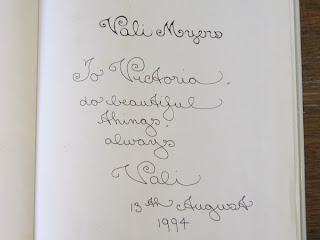 Vali Myers
To Victoria.
do beautiful
things.
always
Vali
13th August
1994